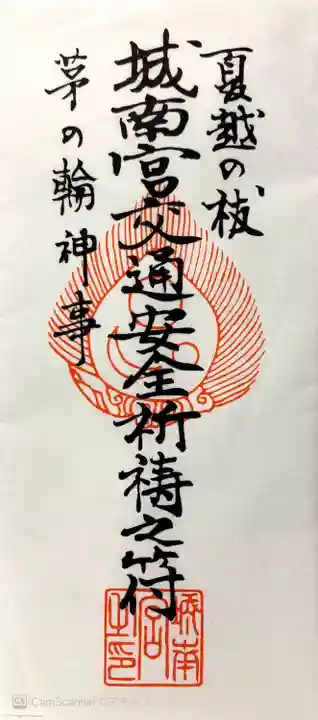 夏越の祓
城南宮交通安全祈祷之符
茅の輪神事
城南宮之印
CamScannerでスキャン